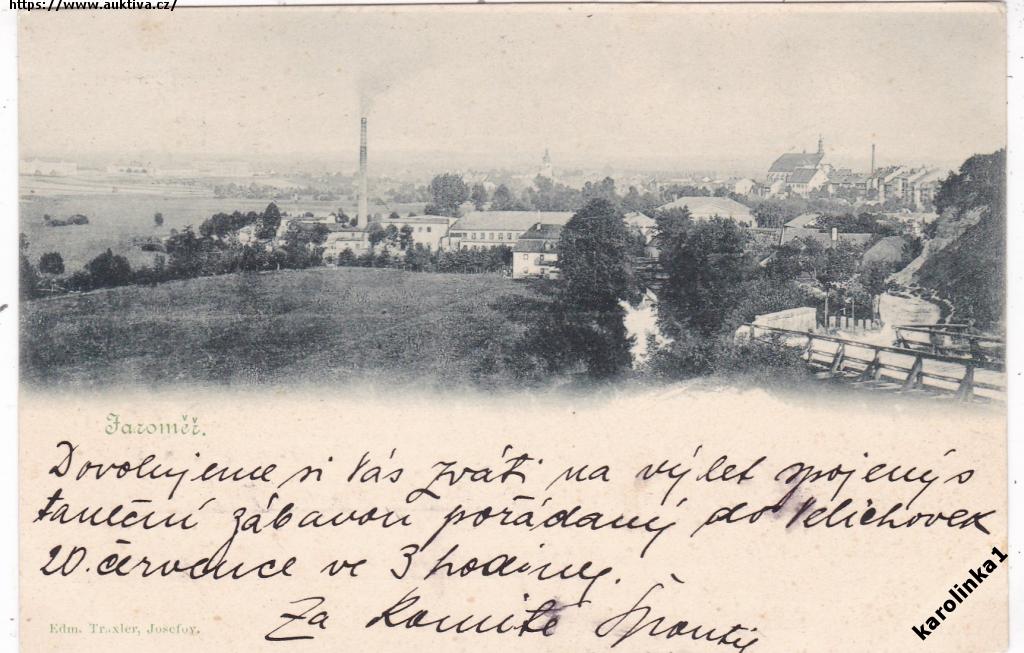 https://www.auktiva.cz/
Jaroměř.
Dovolujeme si Vás zváti na výlet spojený s
taneční zábavou pořádaný do Velichovek
20. července ve 3 hodiny.
Za Komité
Edm. Traxler, Josefov.
karolinka1